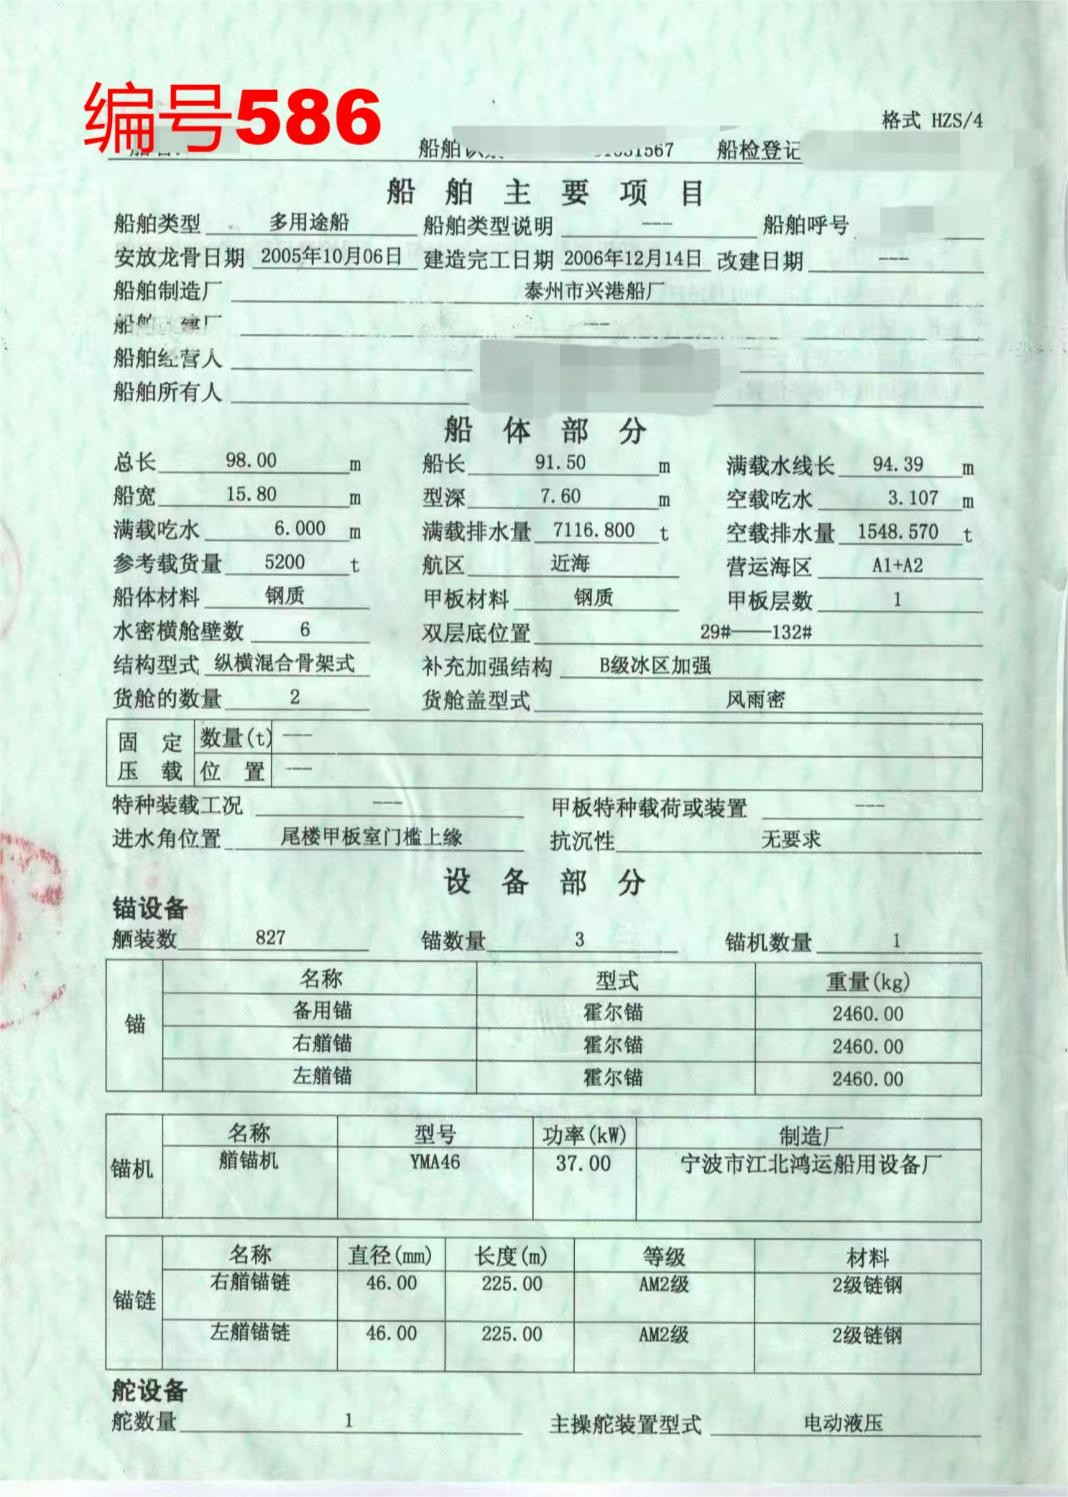 编号586
格式 HZS/4
船舶识 1567 船检登记
船舶主要项目
船舶类型 多用途船 船舶类型说明 --- 船舶呼号
安放龙骨日期 2005年10月06日 建造完工日期 2006年12月14日 改建日期 ---
船舶制造厂 泰州市兴港船厂
船舶 建厂 ---
船舶经营人
船舶所有人
船体部分
总长 98.00 m 船长 91.50 m 满载水线长 94.39 m
船宽 15.80 m 型深 7.60 m 空载吃水 3.107 m
满载吃水 6.000 m 满载排水量 7116.800 t 空载排水量 1548.570 t
参考载货量 5200 t 航区 近海 营运海区 A1+A2
船体材料 钢质 甲板材料 钢质 甲板层数 1
水密横舱壁数 6 双层底位置 29#——132#
结构型式 纵横混合骨架式 补充加强结构 B级冰区加强
货舱的数量 2 货舱盖型式 风雨密
固定 数量(t) ---
压载 位置 ---
特种装载工况 --- 甲板特种载荷或装置 ---
进水角位置 尾楼甲板室门槛上缘 抗沉性 无要求
设备部分
锚设备
舾装数 827 锚数量 3 锚机数量 1
名称 型式 重量(kg)
锚 备用锚 霍尔锚 2460.00
右艏锚 霍尔锚 2460.00
左艏锚 霍尔锚 2460.00
名称 型号 功率(kW) 制造厂
锚机 艏锚机 YMA46 37.00 宁波市江北鸿运船用设备厂
名称 直径(mm) 长度(m) 等级 材料
锚链 右艏锚链 46.00 225.00 AM2级 2级链钢
左艏锚链 46.00 225.00 AM2级 2级链钢
舵设备
舵数量 1 主操舵装置型式 电动液压